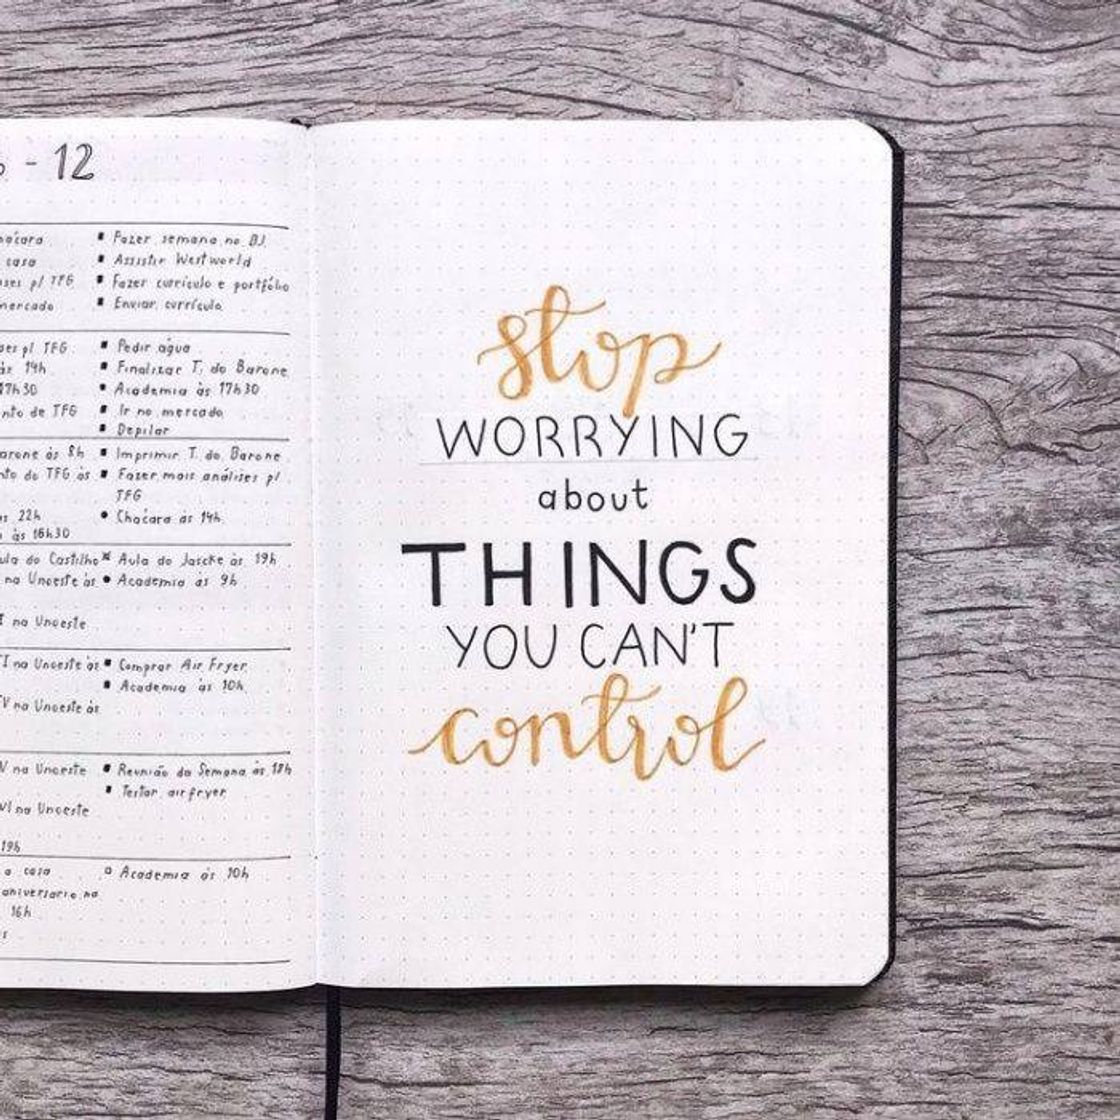 - 12
casa
mercado
Fazer semana no BJ
Assistir Westworld
Fazer currículo e portfólio
Enviar currículo
pl TFG
às 14h
17h30
TFG
Pedir água
Finalizar T. do Barone
Academia às 17h30
Ir no mercado
Depilar
às 8h
TFG às
22h
às 16h30
Imprimir T. do Barone
Fazer mais análises pl
TFG
Chácara às 14h
do Castilho
na Unoeste às
na Unoeste
Aula do Jascke às 19h
Academia às 9h
na Unoeste às
na Unoeste às
Comprar Air Fryer
Academia às 10h
na Unoeste
na Unoeste
19h
Reunião da Semana às 18h
Testar airfryer
a casa
aniversario na
16h
Academia às 10h
stop
WORRYING
about
THINGS
YOU CAN'T
control